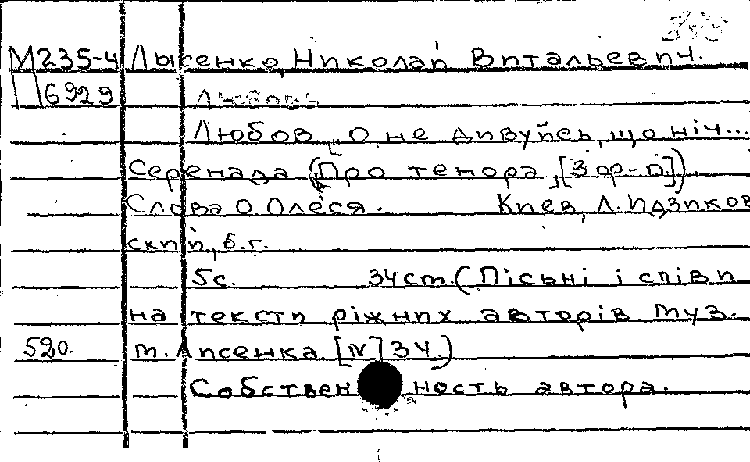 М235-4 Лысенко, Николай Витальевич.
П6929 Любовь
Любов, о не дивуйсь, що ніч...
Серенада (Про тенора, [З фр-п.])
Слова О. Олеся. Киев, Л. Идзиков
ский, б. г.
5с. 34cm (Пісьні і співи
на тексти ріжних авторів муз.
520. М. Лисенка [N] 34.)
Собственность автора.